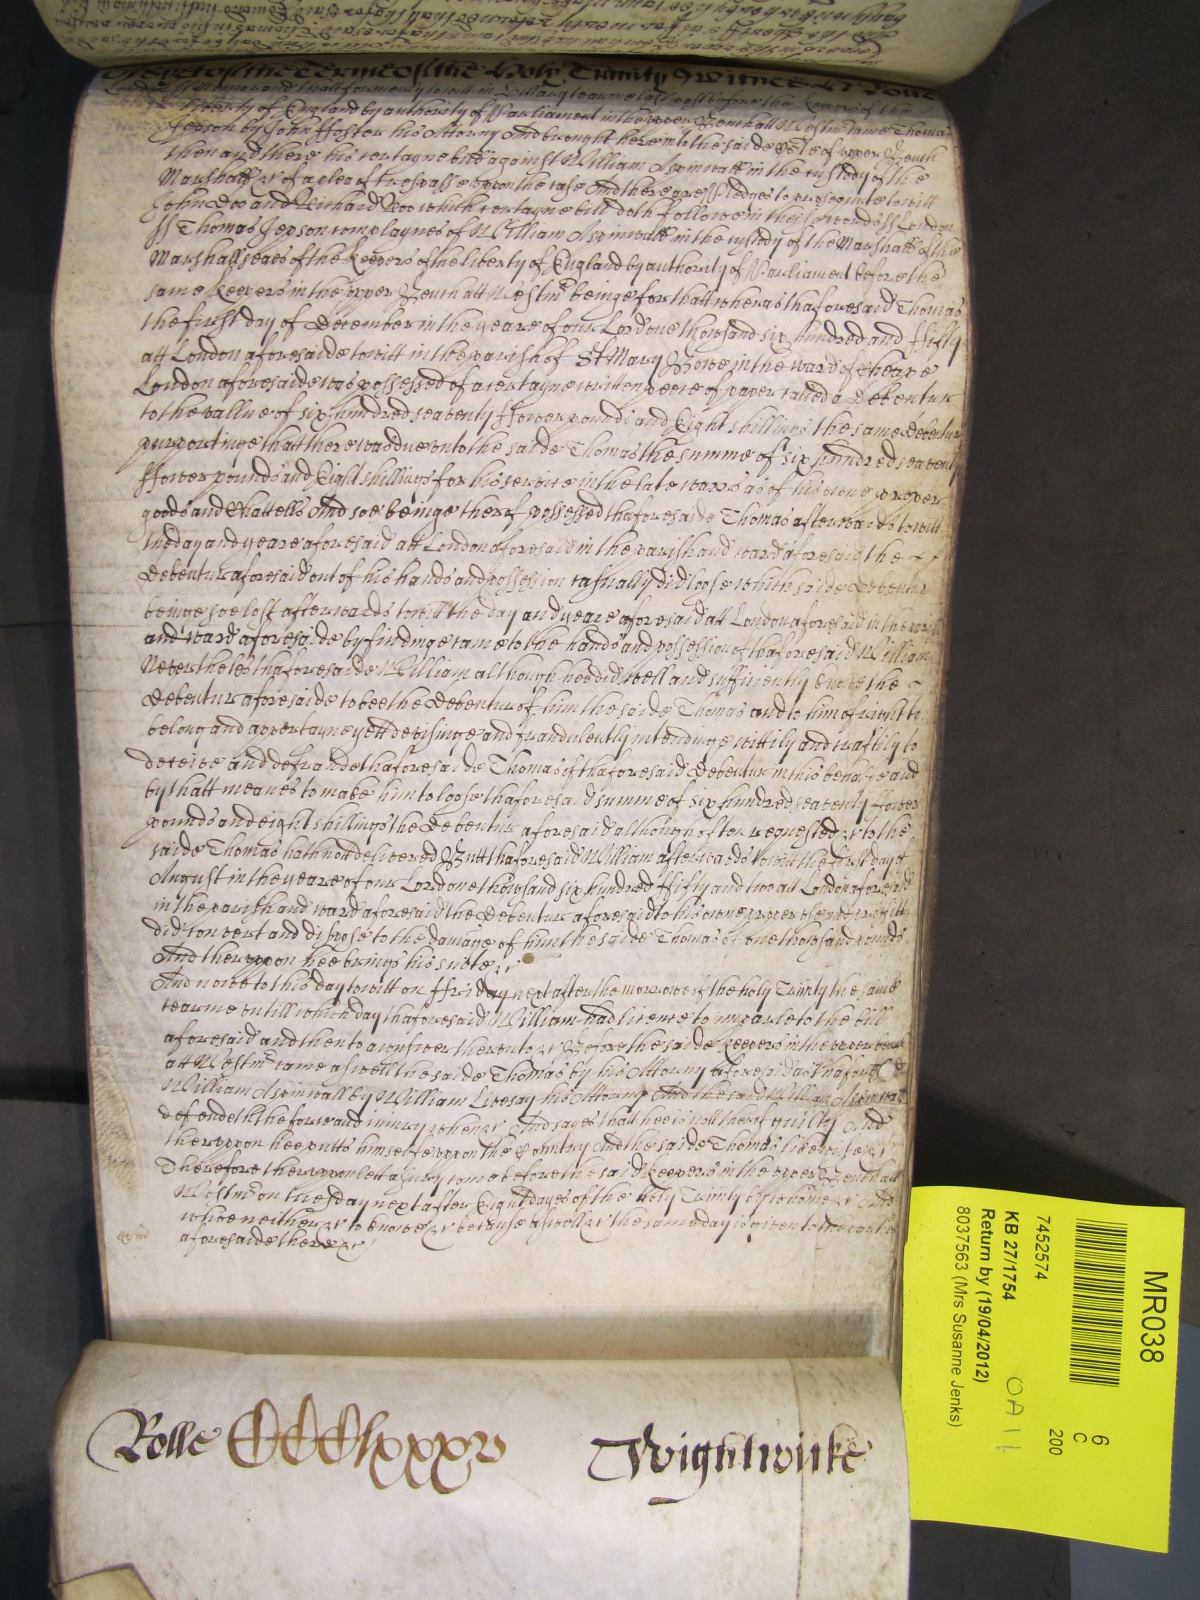 As yet of the Terme of the Holy Trinity Witnes H Rolle
London ss Memorand thatt formerly to witt in Hillary tearme last past before the keepers of the
liberty of England by authority of Parliament in the upper Bench att Westm came Thomas
Jepson by John Ffoster his Attorny And brought here into the saide Cort of upper Bench
then and there his certayne bill against William Aspinwall in the custody of the
Marshall &c of a plea of trespasse uppon the case And there are pledges to prosequute to witt
John Doo and Richard Roo which certayne bill doth followe in theise words ss London
ss Thomas Jepson complaynes of William Aspinwall in the custody of the Marshall of the
Marshallseaes of the keepers of the liberty of England by authority of Parliament before the
same keepers in the upper Bench att Westm beinge for thatt wheras thaforesaid Thomas
the first day of December in the yeare of our Lord one thowsand six hundred and ffifty
att London aforesaide to witt in the parish of St Mary Bowe in the ward of Cheape
London aforesaide was possessed of a certayne written peece of paper called a Debentur
to the vallue of six hundred seaventy ffower pounds and Eight shillings the same Debentur
purportinge that there was due unto the saide Thomas the summe of six hundred seaventy
ffower pounds and Eight shillings for his service in the late warrs as of his owne proper
goods and Chattells And soe beinge therof possessed thaforesaide Thomas afterwards to witt
the day and yeare aforesaid att London aforesaid in the parish and ward aforesaid the
Debentur aforesaid out of his hands and possession casually did loose which saide Debentur
beinge soe lost afterwards to witt the day and yeare aforesaid att London aforesaid in the parish
and ward aforesaide by findinge came to the hands and possession of thaforesaid William
Neverthelesse thaforesaide William although hee did well and sufficiently knowe the
Debentur aforesaide to bee the Debentur of him the saide Thomas and to him of right to
belong and appertayne yett devisinge and fraudulently intendinge wittily and craftily to
deceive and defraude thaforesaide Thomas of thaforesaid Debentur in this behalfe and
by thatt meanes to make him to loose thaforesaid summe of six hundred seaventy ffower
pounds and eight shillings the Debentur aforesaid although often requested &c to the
saide Thomas hath nott delivered Butt thaforesaid William afterwards to witt the first day of
August in the yeare of our Lord one thowsand six hundred ffifty and two att London aforesaid
in the parish and ward aforesaid the Debentur aforesaid to his owne proper use and proffitt
did convert and dispose to the damage of him the saide Thomas of one thowsand pounds
And theruppon hee brings his suite &c
And nowe to this day to witt on ffriday next after the morrowe of the holy Trinity the same
tearme untill which day thaforesaid William had licence to imparle to the bill
aforesaid and then to answer thereunto &c Before the saide keepers in the upper bench
att Westm came aswell the saide Thomas by his Attorny aforesaid as thaforesaid
William Aspinwall by William Livesay his Attorny And the said William Aspinwall
defendeth the force and injury when &c And sayes thatt hee is nott therof guilty And
theruppon hee putts himselfe uppon the Country And the saide Thomas likewise &c
Therefore theruppon lett a Jury come before the said keepers in the upper Bench att
Westm on tuesday next after Eight dayes of the Holy Trinity by whome &c And
whoe neither &c to knowe &c because aswell &c the same day is given to the parties
aforesaide there &c
Rolle CCClxxxv Wightwicke
MR038
6
C
200
7452574
KB 27/1754
Return by (19/04/2012)
8037563 (Mrs Susanne Jenks)